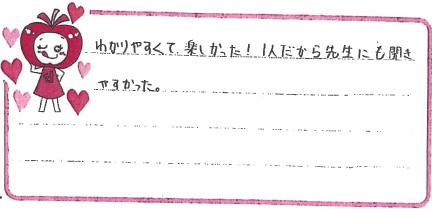 わかりやすくて楽しかった！1人だから先生にも聞き
やすかった。